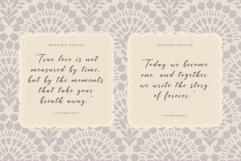 WEDDING QUOTES
"True love is not
measured by time,
but by the moments
that take your
breath away."
TYPOGRAPHY
WEDDING QUOTES
"Today we become
one, and together
we write the story
of forever."
TYPOGRAPHY